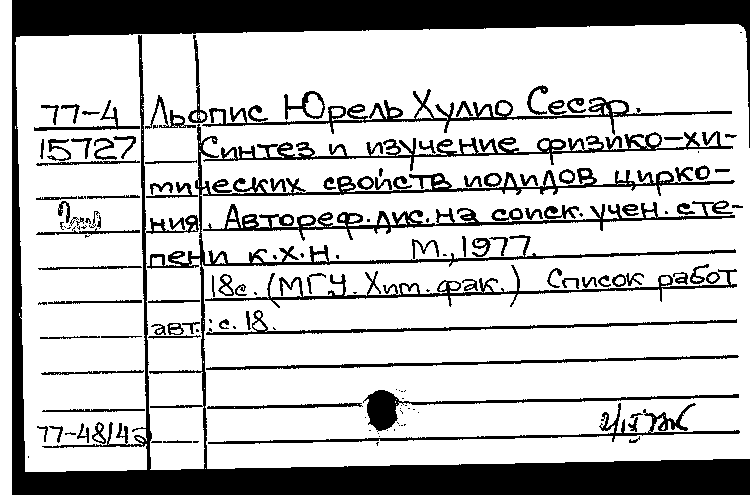 77-4 Льопис Юрель Хулио Сесар.
15727 Синтез и изучение физико-хи-
мических свойств иодидов цирко-
ния. Автореф.дис.на соиск.учен.сте-
пени к.х.н. М.,1977.
18с. (МГУ. Хим. фак.) Список работ
авт.: с. 18.
77-48142